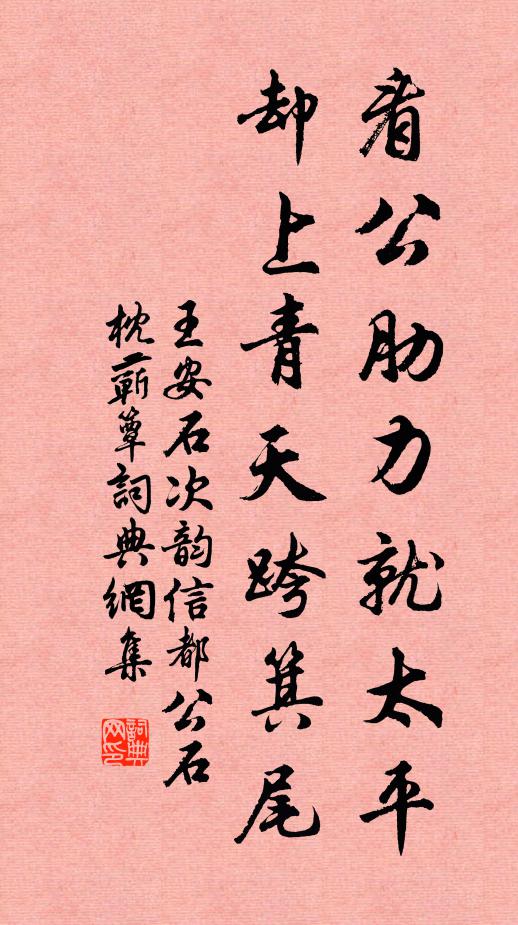 看公肋力就太平
却上青天跨箕尾
王安石次韵信都公石
枕蕲簟詞典網集
詞典網印